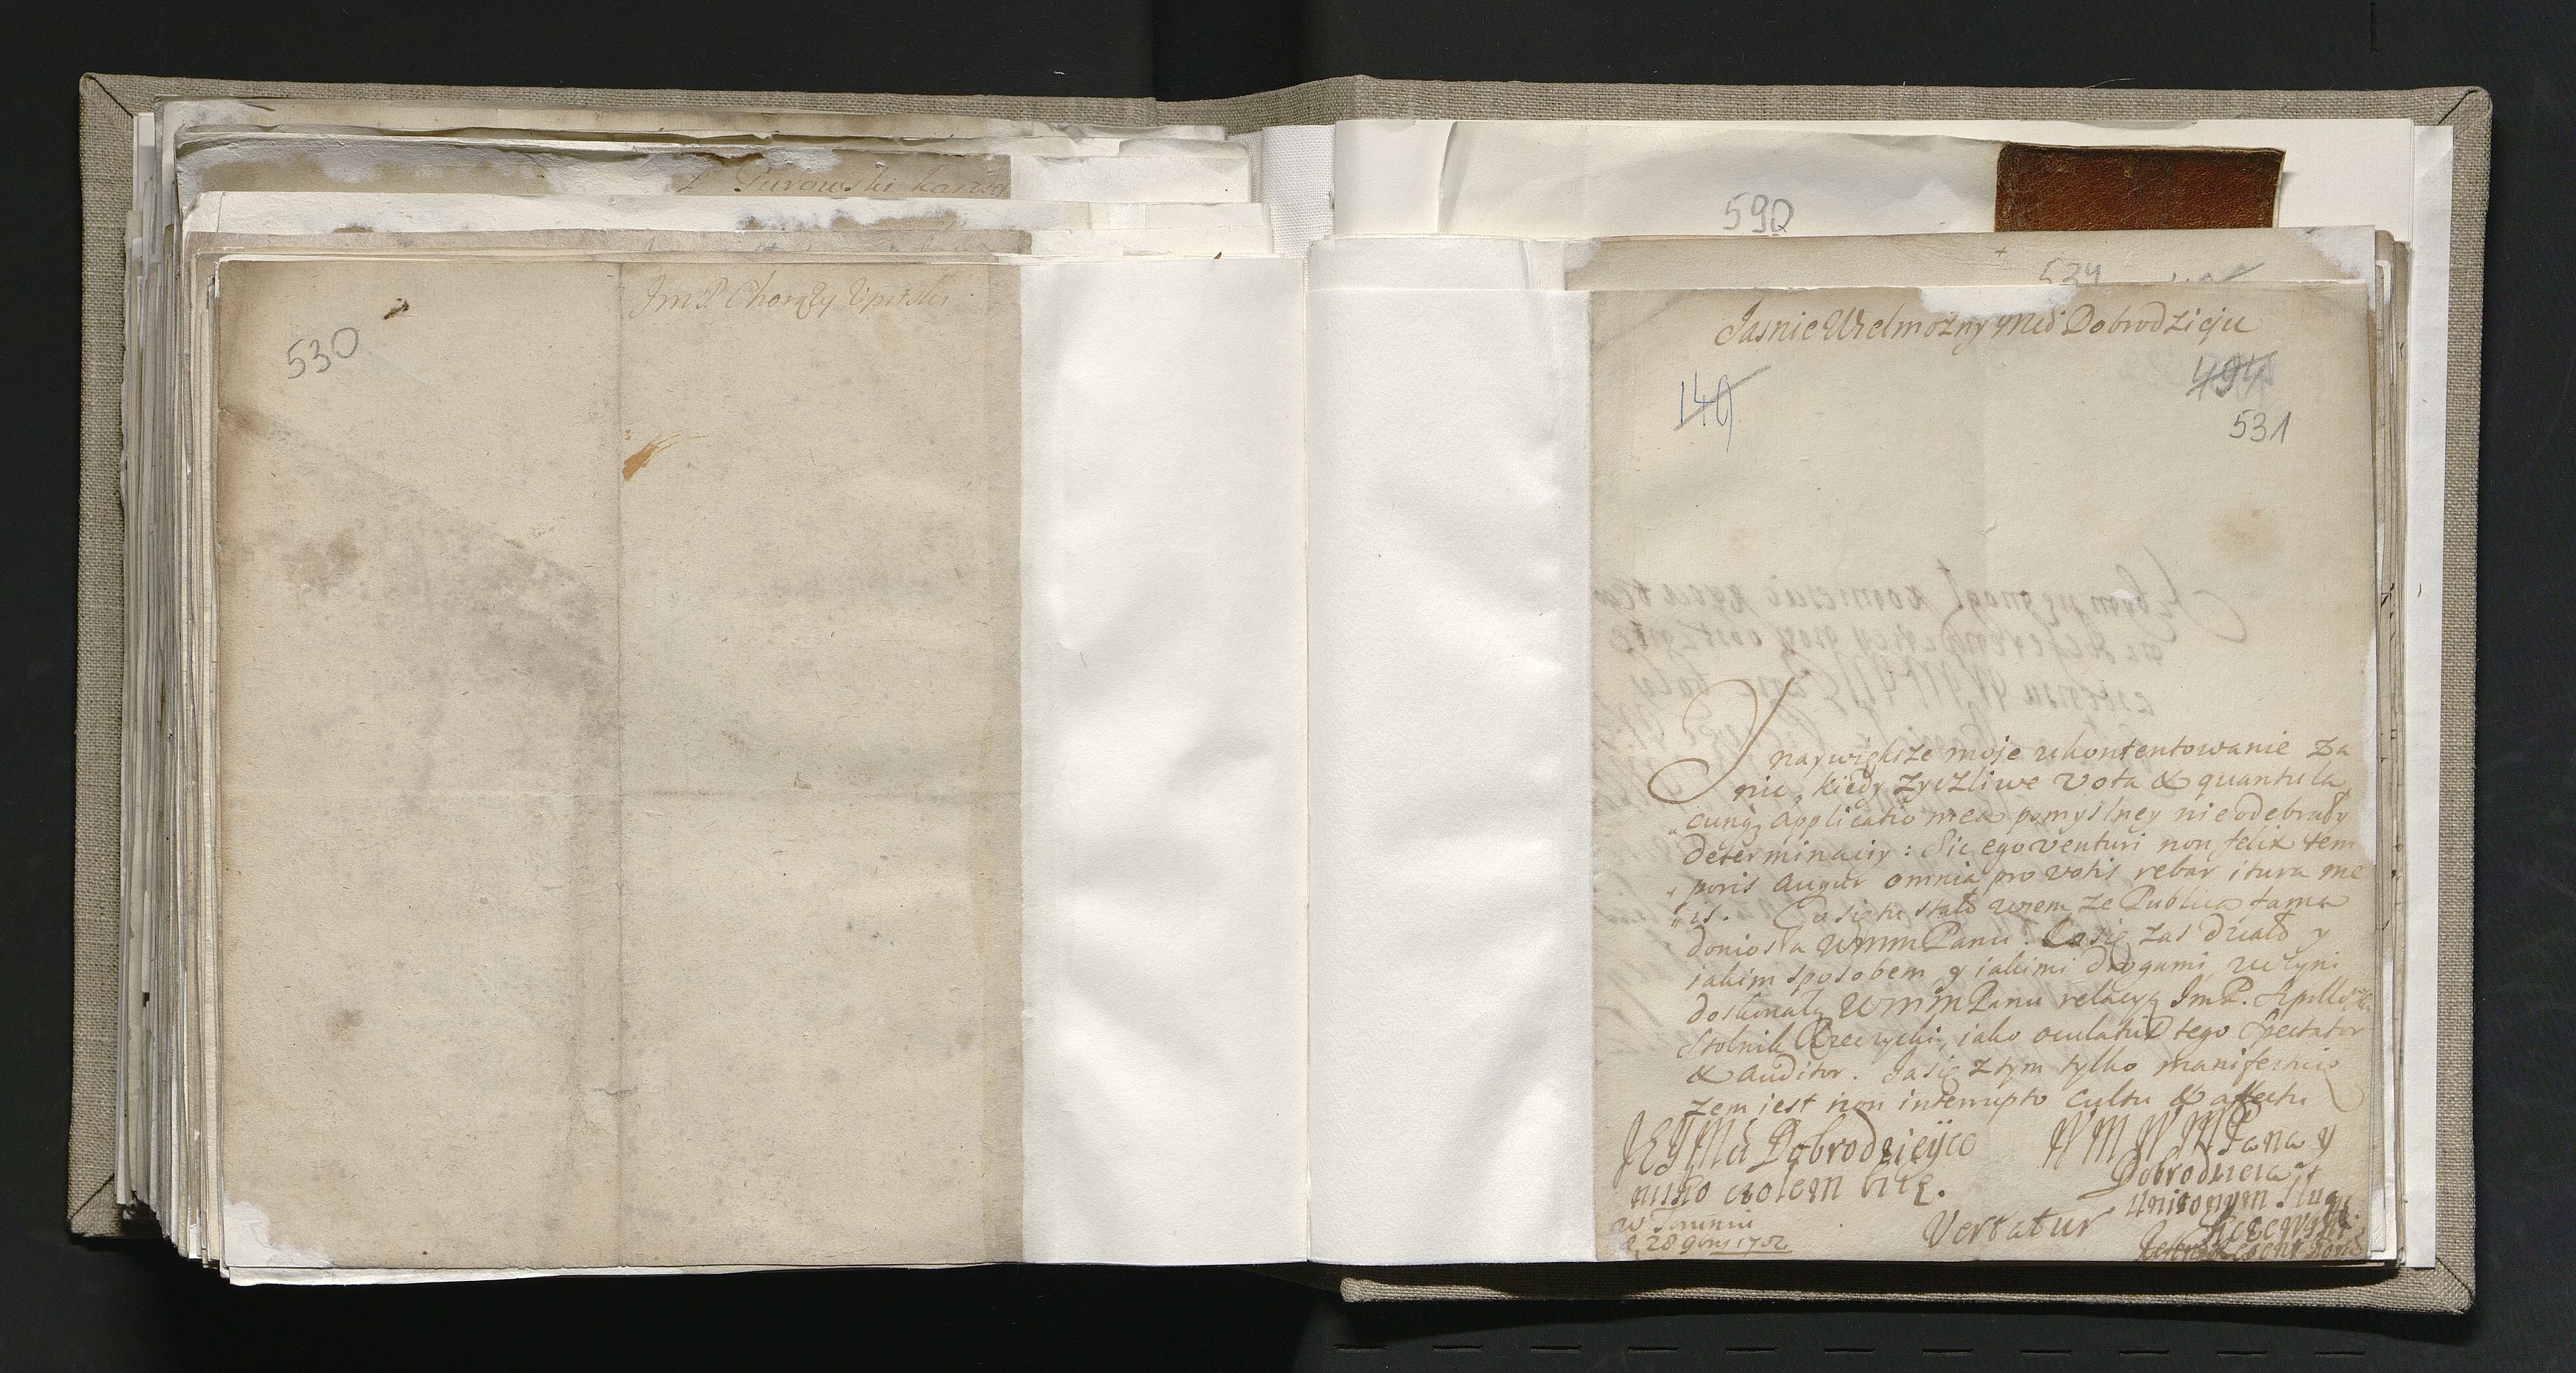 P Gurowski
530
Jm P Chorąży Upitski
590
534
Jasnie Wielmozny Mci Dobrodzieju
149
494
531
I naywiększe moje ukontentowanie za
nic, kiedy zyczliwe vota & quantula
„cunq; applicatio mea pomyslney nieodebrały
determinacij: Sic ego venturi non felix tem
„poris augur omnia pro votis rebar itura me
„is. Co się tu stało wiem, ze Publica fama
doniosła WMM Panu. Co się zas działo y
iakim sposobem y iakimi drogami, uczyni
doskonałą WMM Panu relacyą JmP.
Stolnik Rzeczycki, iako oculatus tego Spectator
& auditor. Ja się z tym tylko manifestuię
zem jest non interrupto cultu & affectu
JEYMci Dobrodzieyce WMWMPana y
nisko czołem biię. Dobrodzieia
Unizonym Sługą
w Toruniu Vertatur
d 28 9bris 1702